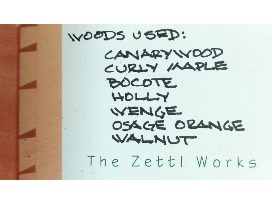 WOODS USED:
CANARYWOOD
CURLY MAPLE
BOCOTE
HOLLY
WENGE
OSAGE ORANGE
WALNUT
The Zettl Works